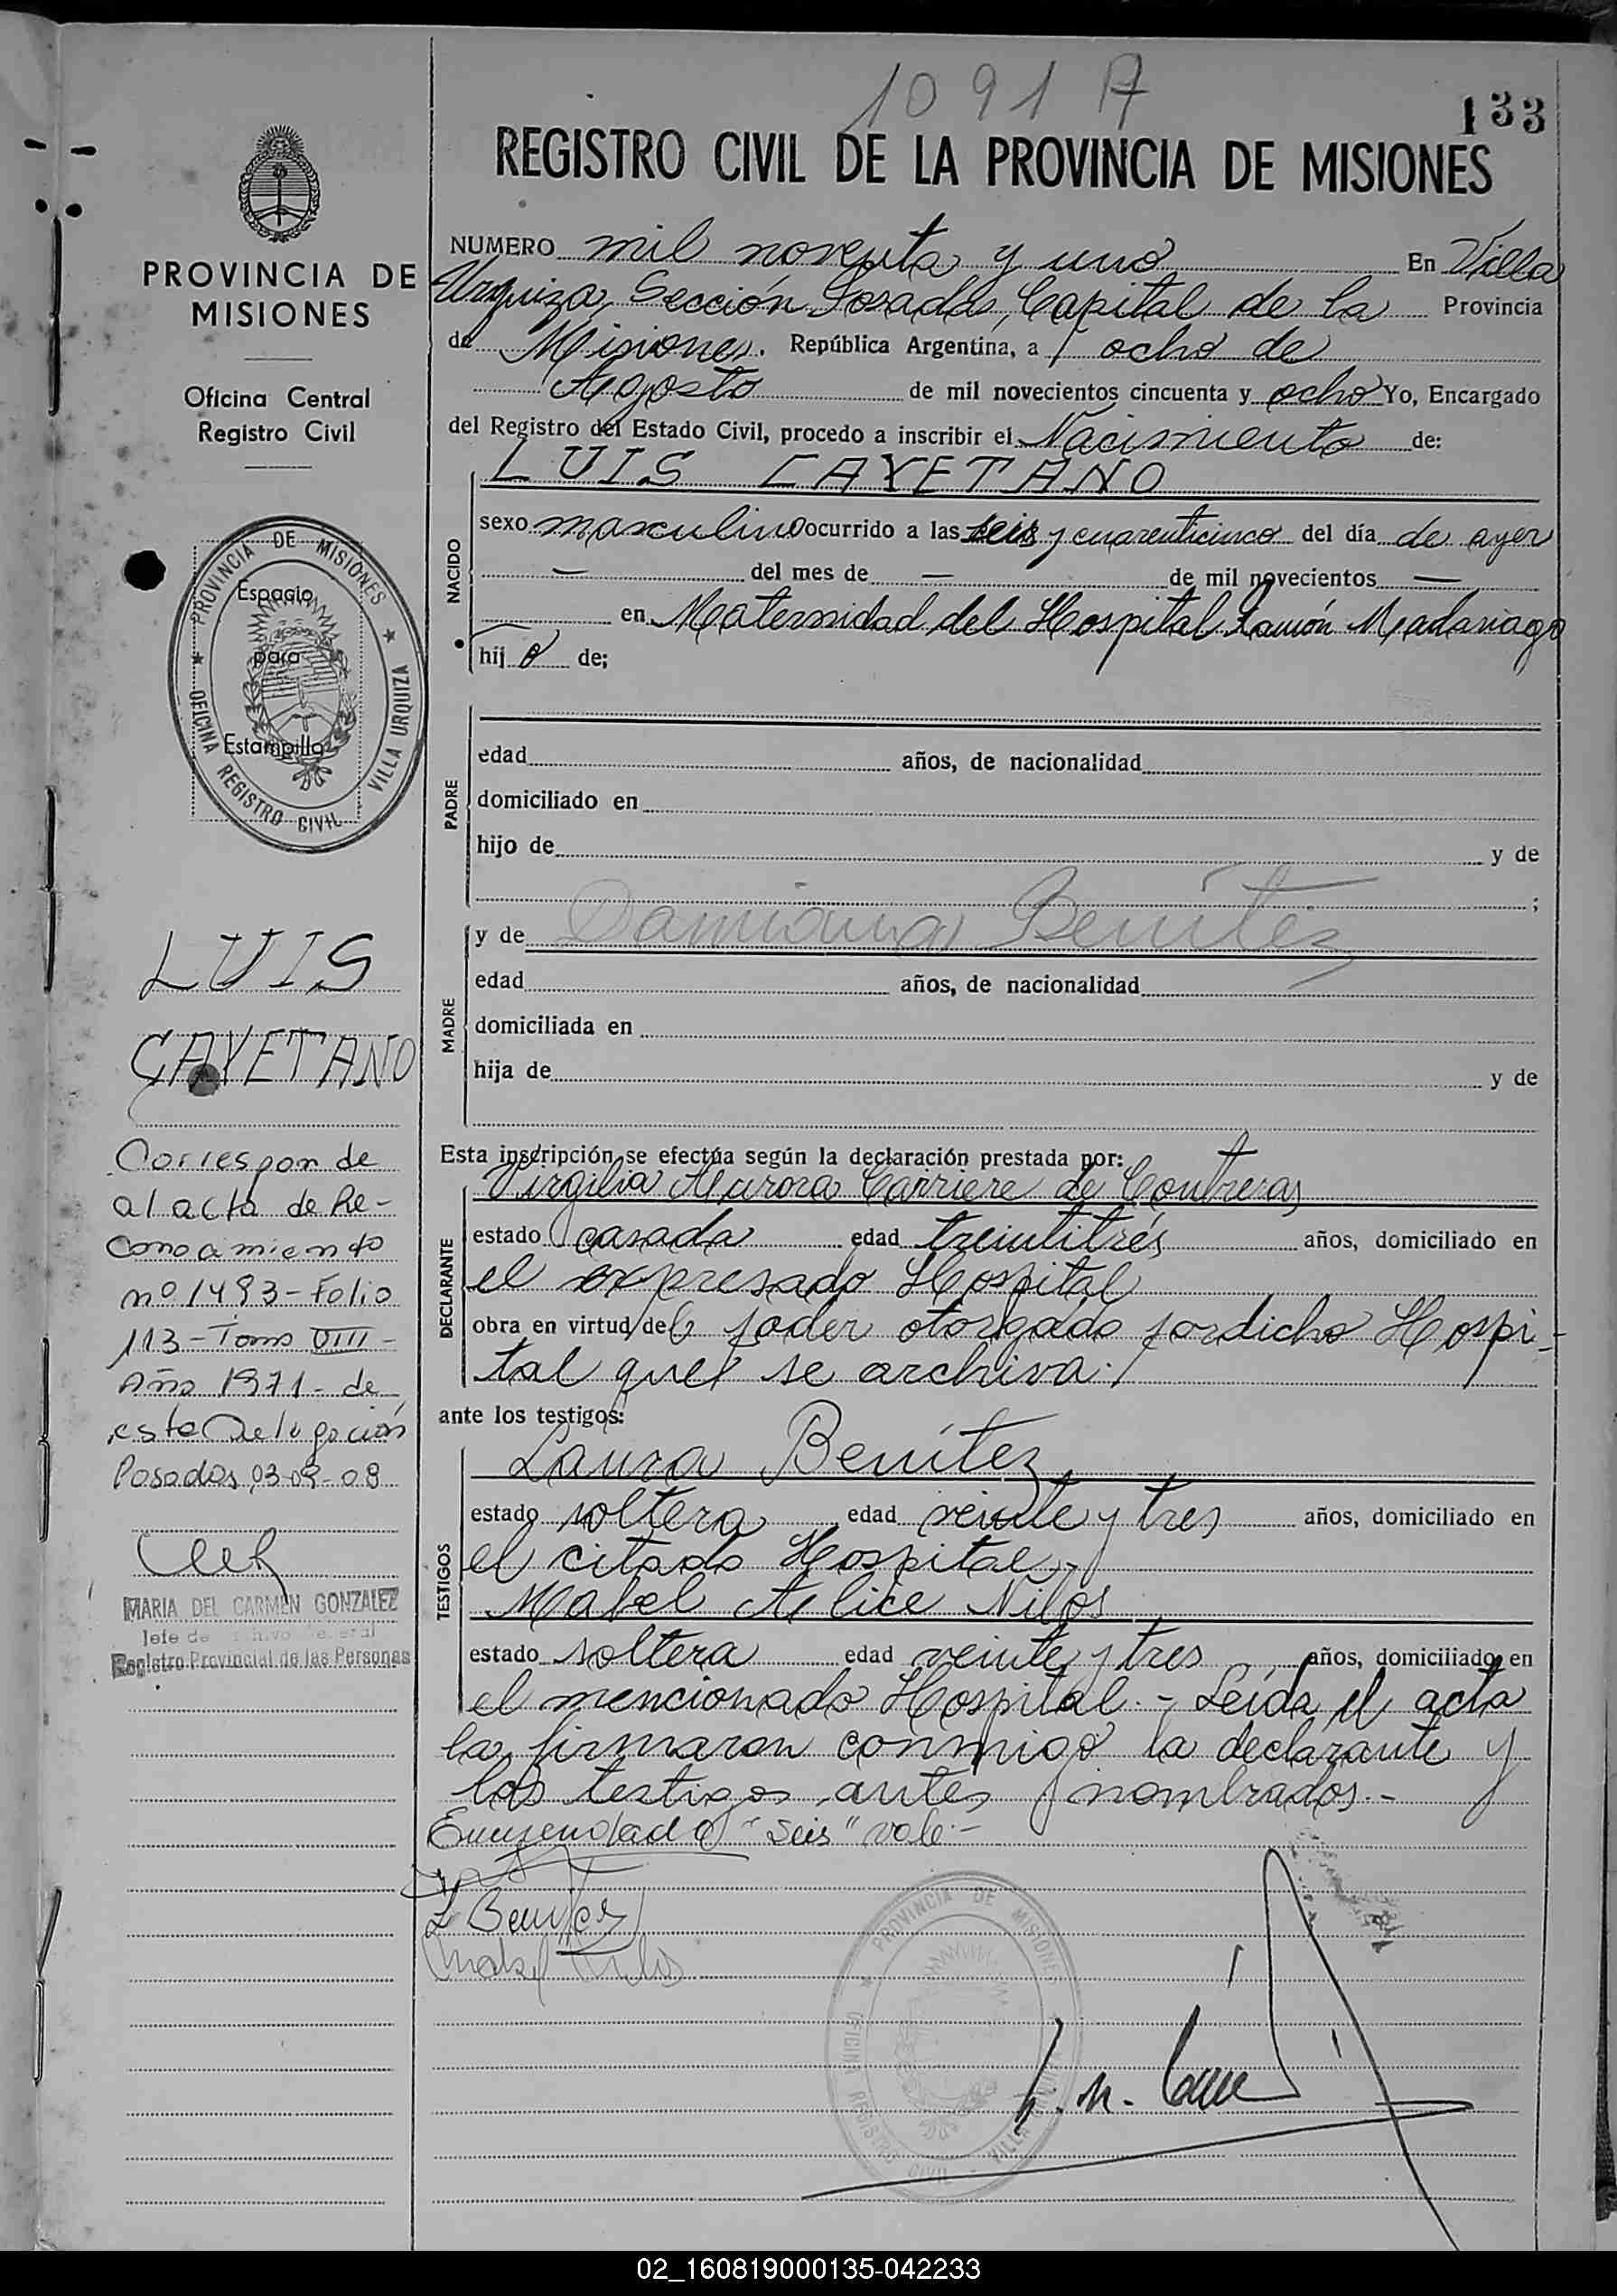 1091 A
133
REGISTRO CIVIL DE LA PROVINCIA DE MISIONES
PROVINCIA DE
MISIONES
Oficina Central
Registro Civil
PROVINCIA DE MISIONES
OFICINA REGISTRO CIVIL VILLA URQUIZA
Espacio
para
Estampilla
LUIS
CAYETANO
Corresponde
al acta de Re-
conocimiento
nº 1493 - Folio
113 - Tomo VIII -
Año 1971 - de
esta Delegación
Posadas, 03-09-08
MARIA DEL CARMEN GONZALEZ
Jefe de Archivo General
Registro Provincial de las Personas
NUMERO mil noventa y uno En Villa
Urquiza, Sección Posadas, Capital de la Provincia
de Misiones. República Argentina, a ocho de
Agosto de mil novecientos cincuenta y ocho Yo, Encargado
del Registro del Estado Civil, procedo a inscribir el Nacimiento de:
NACIDO
LUIS CAYETANO
sexo masculino ocurrido a las seis y cuarenticinco del día de ayer
— del mes de — de mil novecientos —
en Maternidad del Hospital Ramón Madariaga
hijo de;
PADRE
edad años, de nacionalidad
domiciliado en
hijo de y de
;
MADRE
y de Damiana Benítez
edad años, de nacionalidad
domiciliada en
hija de y de
Esta inscripción se efectúa según la declaración prestada por:
DECLARANTE
Virgilia Aurora Carriere de Contreras
estado casada edad treintitrés años, domiciliado en
el expresado Hospital
obra en virtud del poder otorgado por dicho Hospi-
tal que se archiva.
ante los testigos:
TESTIGOS
Laura Benítez
estado soltera edad veinte y tres años, domiciliado en
el citado Hospital,
Mabel Alice Nilos
estado soltera edad veinte y tres años, domiciliado en
el mencionado Hospital. - Leída el acta
la firmaron conmigo la declarante y
los testigos antes nombrados. -
Enmendado "seis" vale. -
L Benítez
Mabel Nilos
PROVINCIA DE MISIONES
OFICINA REGISTRO CIVIL VILLA URQUIZA
02_160819000135-042233